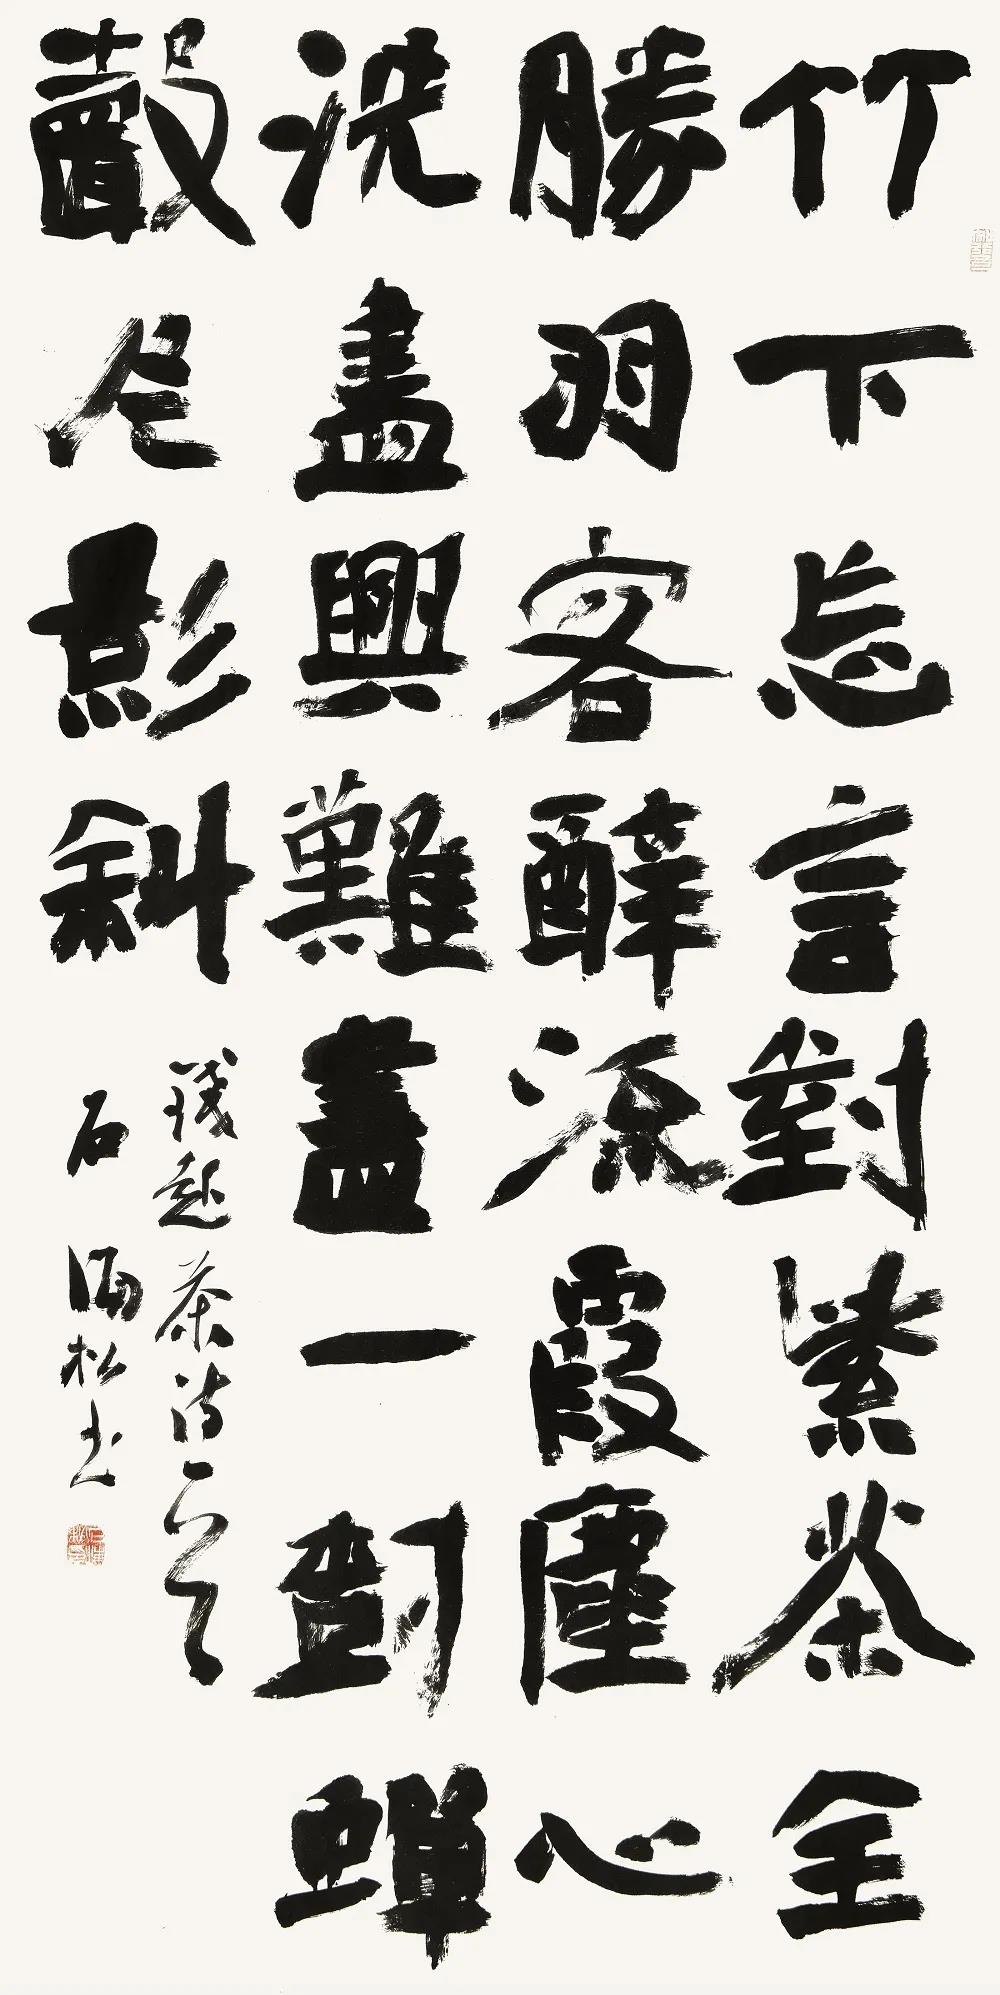 竹下忘言對紫茶全
勝羽客醉流霞塵心
洗盡興難盡一樹蟬
聲片影斜
錢起茶詩一首
石海松书